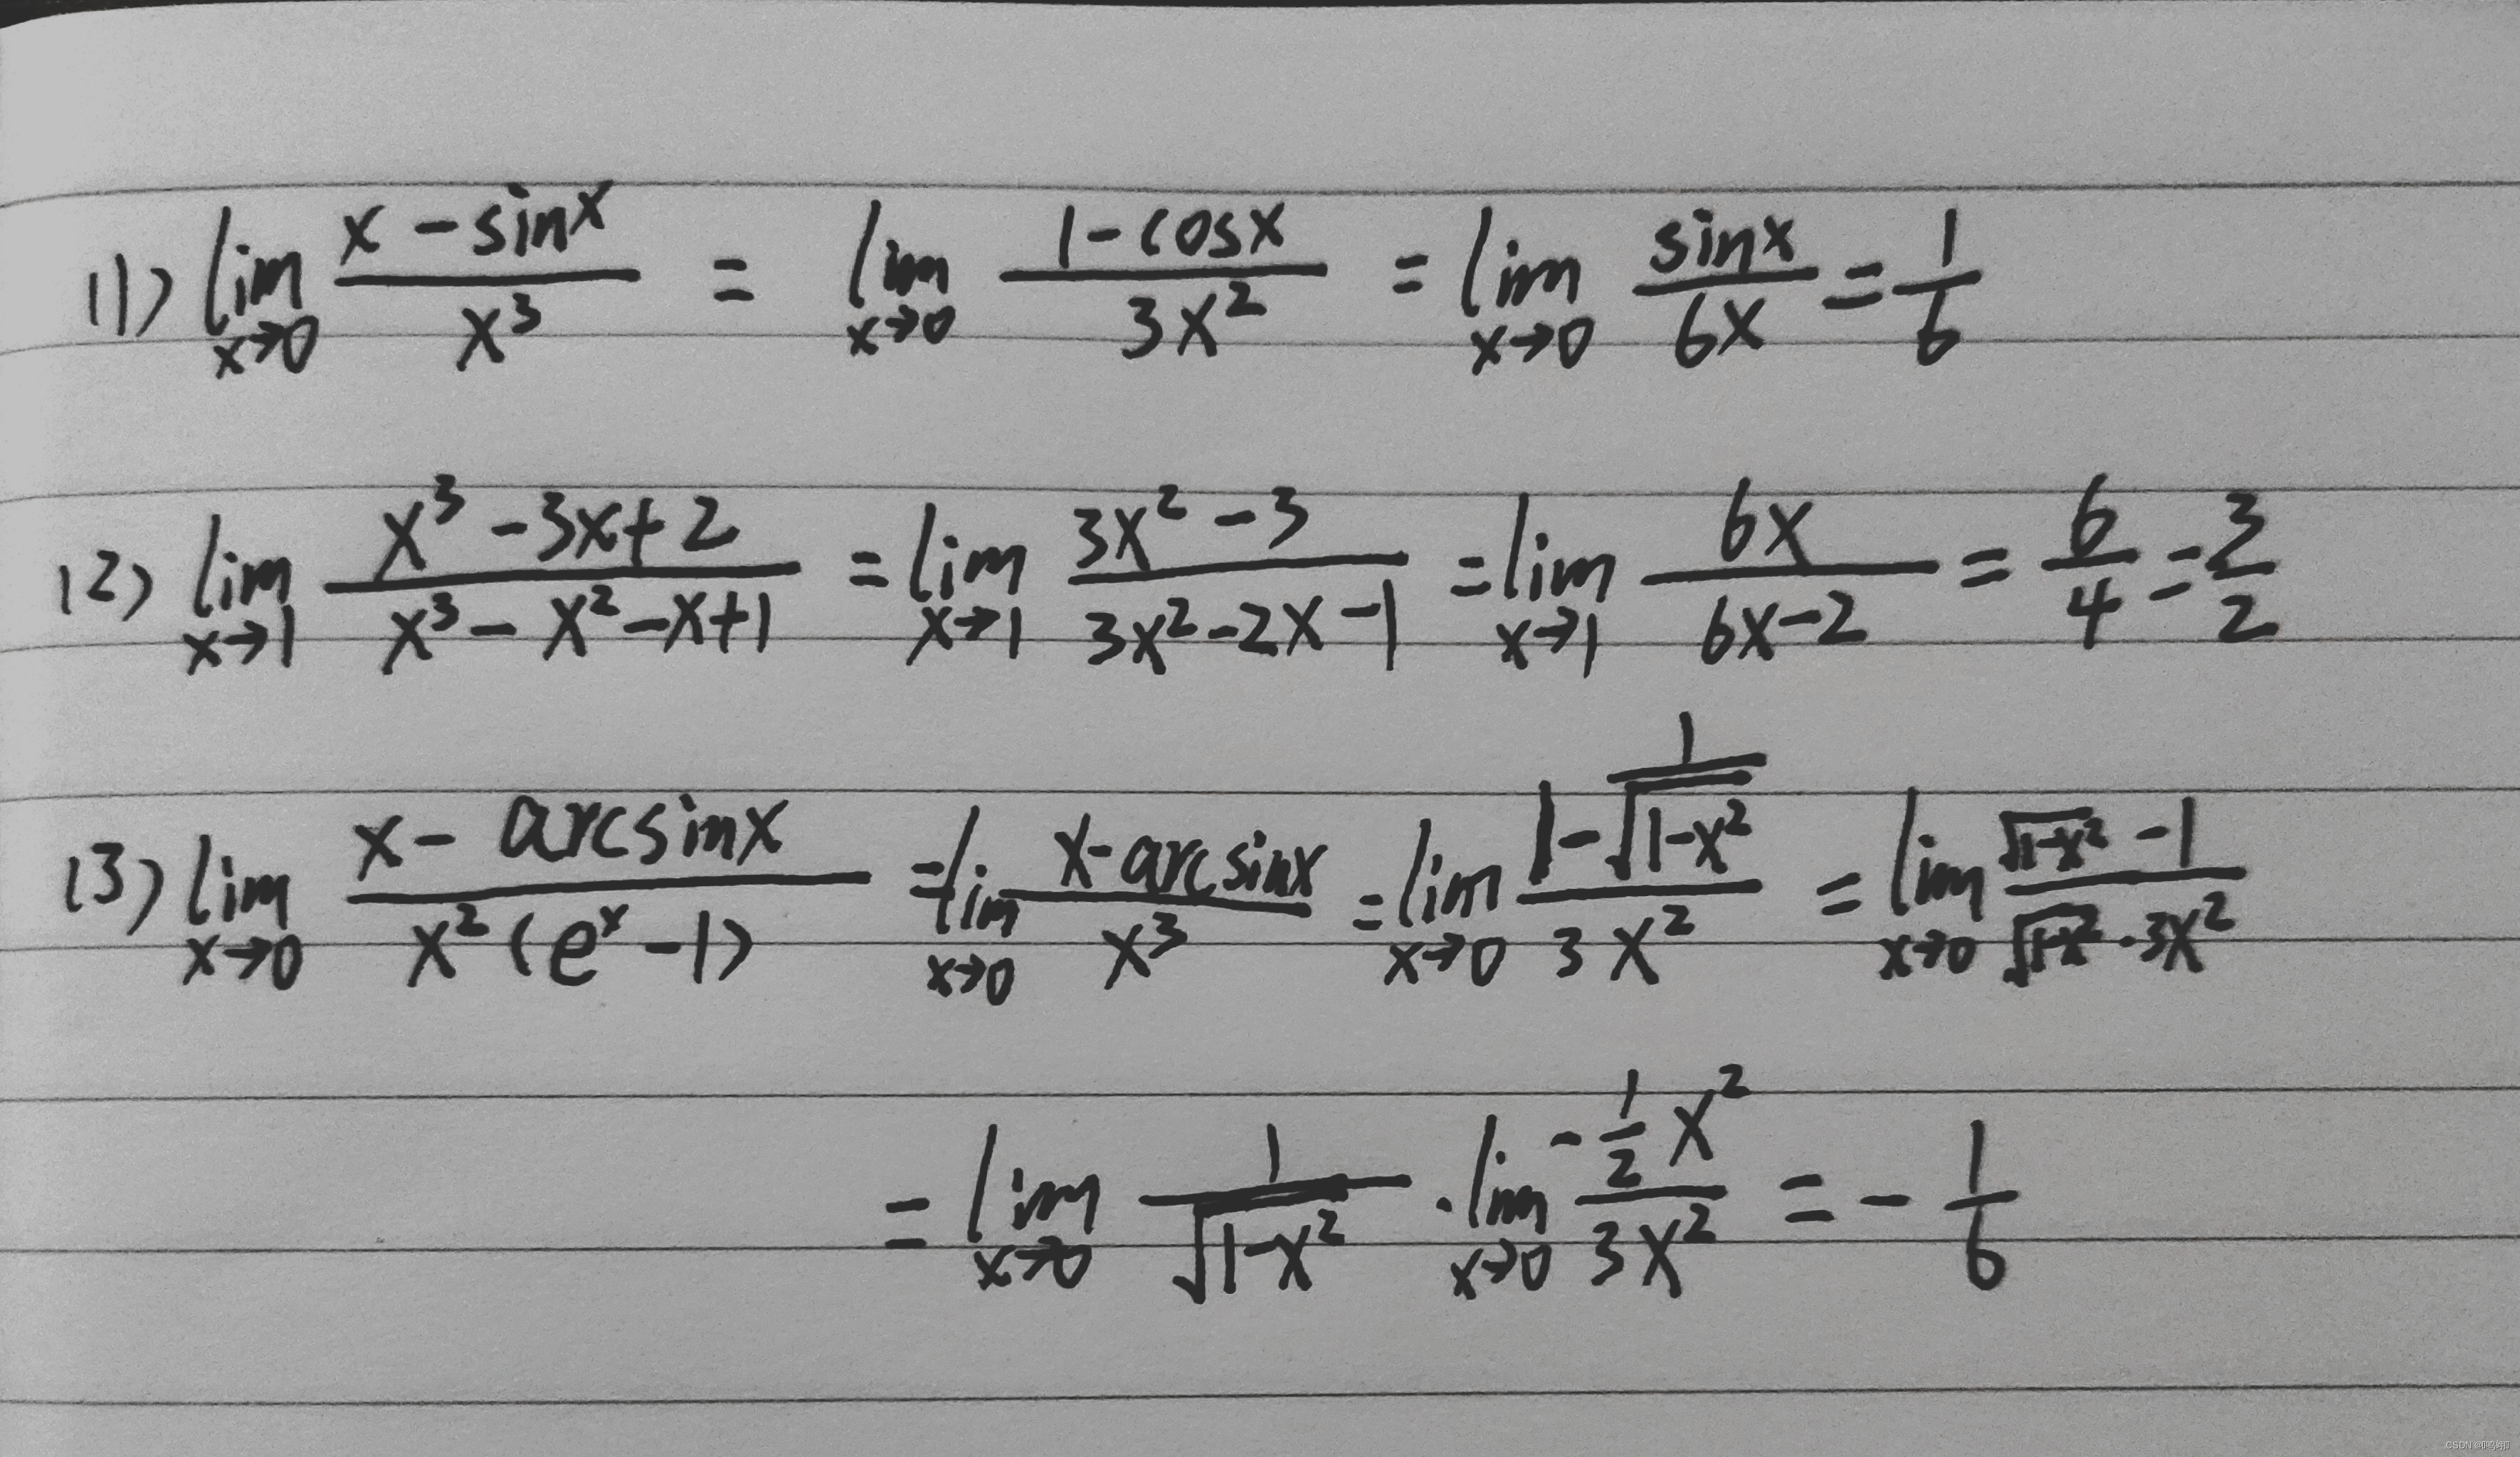 (1) \lim_{x→0} \frac{x - \sin x}{x^3} = \lim_{x→0} \frac{1 - \cos x}{3x^2} = \lim_{x→0} \frac{\sin x}{6x} = \frac{1}{6}
(2) \lim_{x→1} \frac{x^3 - 3x + 2}{x^3 - x^2 - x + 1} = \lim_{x→1} \frac{3x^2 - 3}{3x^2 - 2x - 1} = \lim_{x→1} \frac{6x}{6x - 2} = \frac{6}{4} = \frac{3}{2}
(3) \lim_{x→0} \frac{x - \arcsin x}{x^2(e^x - 1)} = \lim_{x→0} \frac{x - \arcsin x}{x^3} = \lim_{x→0} \frac{1 - \frac{1}{\sqrt{1-x^2}}}{3x^2} = \lim_{x→0} \frac{\sqrt{1-x^2} - 1}{\sqrt{1-x^2} \cdot 3x^2}
= \lim_{x→0} \frac{1}{\sqrt{1-x^2}} \cdot \lim_{x→0} \frac{-\frac{1}{2}x^2}{3x^2} = -\frac{1}{6}